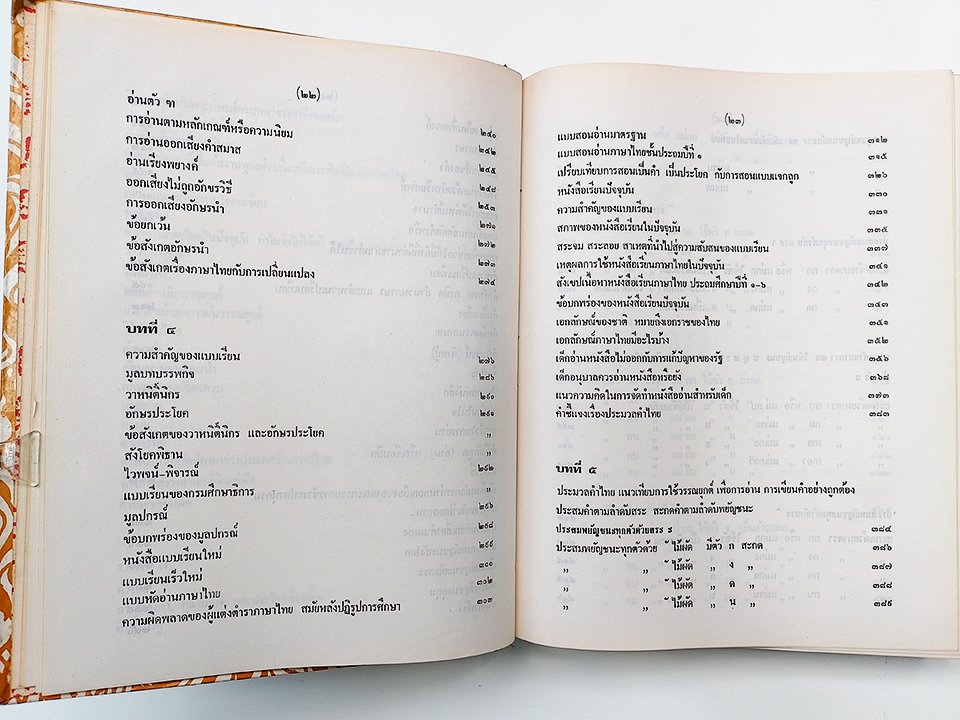 (๒๒)
อ่านตัว ฑ ๒๔๐
การอ่านตามหลักเกณฑ์หรือความนิยม ๒๔๒
การอ่านออกเสียงคำสมาส ๒๔๕
อ่านเรียงพยางค์ ๒๔๘
ออกเสียงไม่ถูกอักขรวิธี ๒๕๓
การออกเสียงอักษรนำ ๒๗๑
ข้อยกเว้น ๒๗๒
ข้อสังเกตอักษรนำ ๒๗๓
ข้อสังเกตเรื่องภาษาไทยกับการเปลี่ยนแปลง ๒๗๔
บทที่ ๔
ความสำคัญของแบบเรียน ๒๗๖
มูลบทบรรพกิจ ๒๘๖
วาหนิติ์นิกร ๒๙๐
อักษรประโยค ๒๙๑
ข้อสังเกตของวาหนิติ์นิกร และอักษรประโยค ,,
สังโยคพิธาน ,,
ไวพจน์-พิจารณ์ ๒๙๒
แบบเรียนของกรมศึกษาธิการ ,,
มูลปกรณ์ ๒๙๖
ข้อบกพร่องของมูลปกรณ์ ๒๙๘
หนังสือแบบเรียนใหม่ ๒๙๙
แบบเรียนเร็วใหม่ ๓๐๑
แบบหัดอ่านภาษาไทย ๓๐๒
ความผิดพลาดของผู้แต่งตำราภาษาไทย สมัยหลังปฏิรูปการศึกษา ๓๐๓
(๒๓)
แบบสอนอ่านมาตรฐาน ๓๑๒
แบบสอนอ่านภาษาไทยชั้นประถมปีที่ ๑ ๓๑๕
เปรียบเทียบการสอนเป็นคำ เป็นประโยค กับการสอนแบบแจกลูก ๓๒๖
หนังสือเรียนปัจจุบัน ๓๓๐
ความสำคัญของแบบเรียน ๓๓๑
สภาพของหนังสือเรียนในปัจจุบัน ๓๓๕
สระจม สระลอย สาเหตุที่นำไปสู่ความสับสนของแบบเรียน ๓๓๗
เหตุผลการใช้หนังสือเรียนภาษาไทยในปัจจุบัน ๓๔๑
สังเขปเนื้อหาหนังสือเรียนภาษาไทย ประถมศึกษาปีที่ ๑-๖ ๓๔๒
ข้อบกพร่องของหนังสือเรียนปัจจุบัน ๓๔๓
เอกลักษณ์ของชาติ หมายถึงเอกราชของไทย ๓๕๑
เอกลักษณ์ภาษาไทยมีอะไรบ้าง ๓๕๒
เด็กอ่านหนังสือไม่ออกกับการแก้ปัญหาของรัฐ ๓๕๖
เด็กอนุบาลควรอ่านหนังสือหรือยัง ๓๖๘
แนวความคิดในการจัดทำหนังสืออ่านสำหรับเด็ก ๓๗๓
คำชี้แจงเรื่องประมวลคำไทย ๓๘๓
บทที่ ๕
ประมวลคำไทย แนวเทียบการใช้วรรณยุกต์ เพื่อการอ่าน การเขียนคำอย่างถูกต้อง
ประสมคำตามลำดับสระ สะกดคำตามลำดับพยัญชนะ
ประสมพยัญชนะทุกตัวด้วยสระ ะ ๓๘๔
ประสมพยัญชนะทุกตัวด้วย ั ไม้ผัด มีตัว ก สะกด ๓๘๖
,, ,, ั ไม้ผัด ,, ง ,, ๓๘๗
,, ,, ั ไม้ผัด ,, ด ,, ๓๘๘
,, ,, ั ไม้ผัด ,, น ,, ๓๘๙